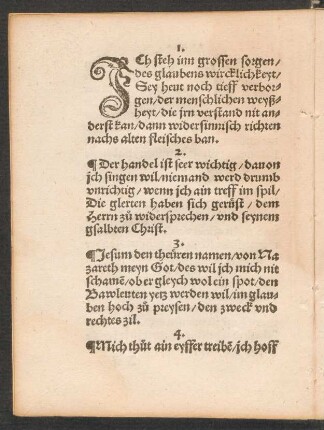 1.
ICh steh inn grossen sorgen/
des glaubens wircklichkeyt/
Sey heut noch tieff verbor-
gen/ der menschlichen weyß-
heyt/ die jrn verstand nit an
derst kan/ dann widersinnisch richten
nachs alten fleisches ban.
2.
¶Der handel ist seer wichtig/ dauon
jch singen wil/ niemand werd drumb
vnrichtig/ wenn jch ain treff im spil/
Die glerten haben sich gerüst/ dem
Herrn zů widersprechen/ vnd seynem
gsalbten Christ.
3.
¶Jesum den theüren namen/ von Na
zareth meyn Got/ des wil jch mich nit
schamẽ/ ob er gleych wol ein spot/ den
Bawleuten yetz werden wil/ im glau-
ben hoch zů preysen/ den zweck vnd
rechtes zil.
4.
¶Mich thůt ain eyffer treibẽ/ jch hoff